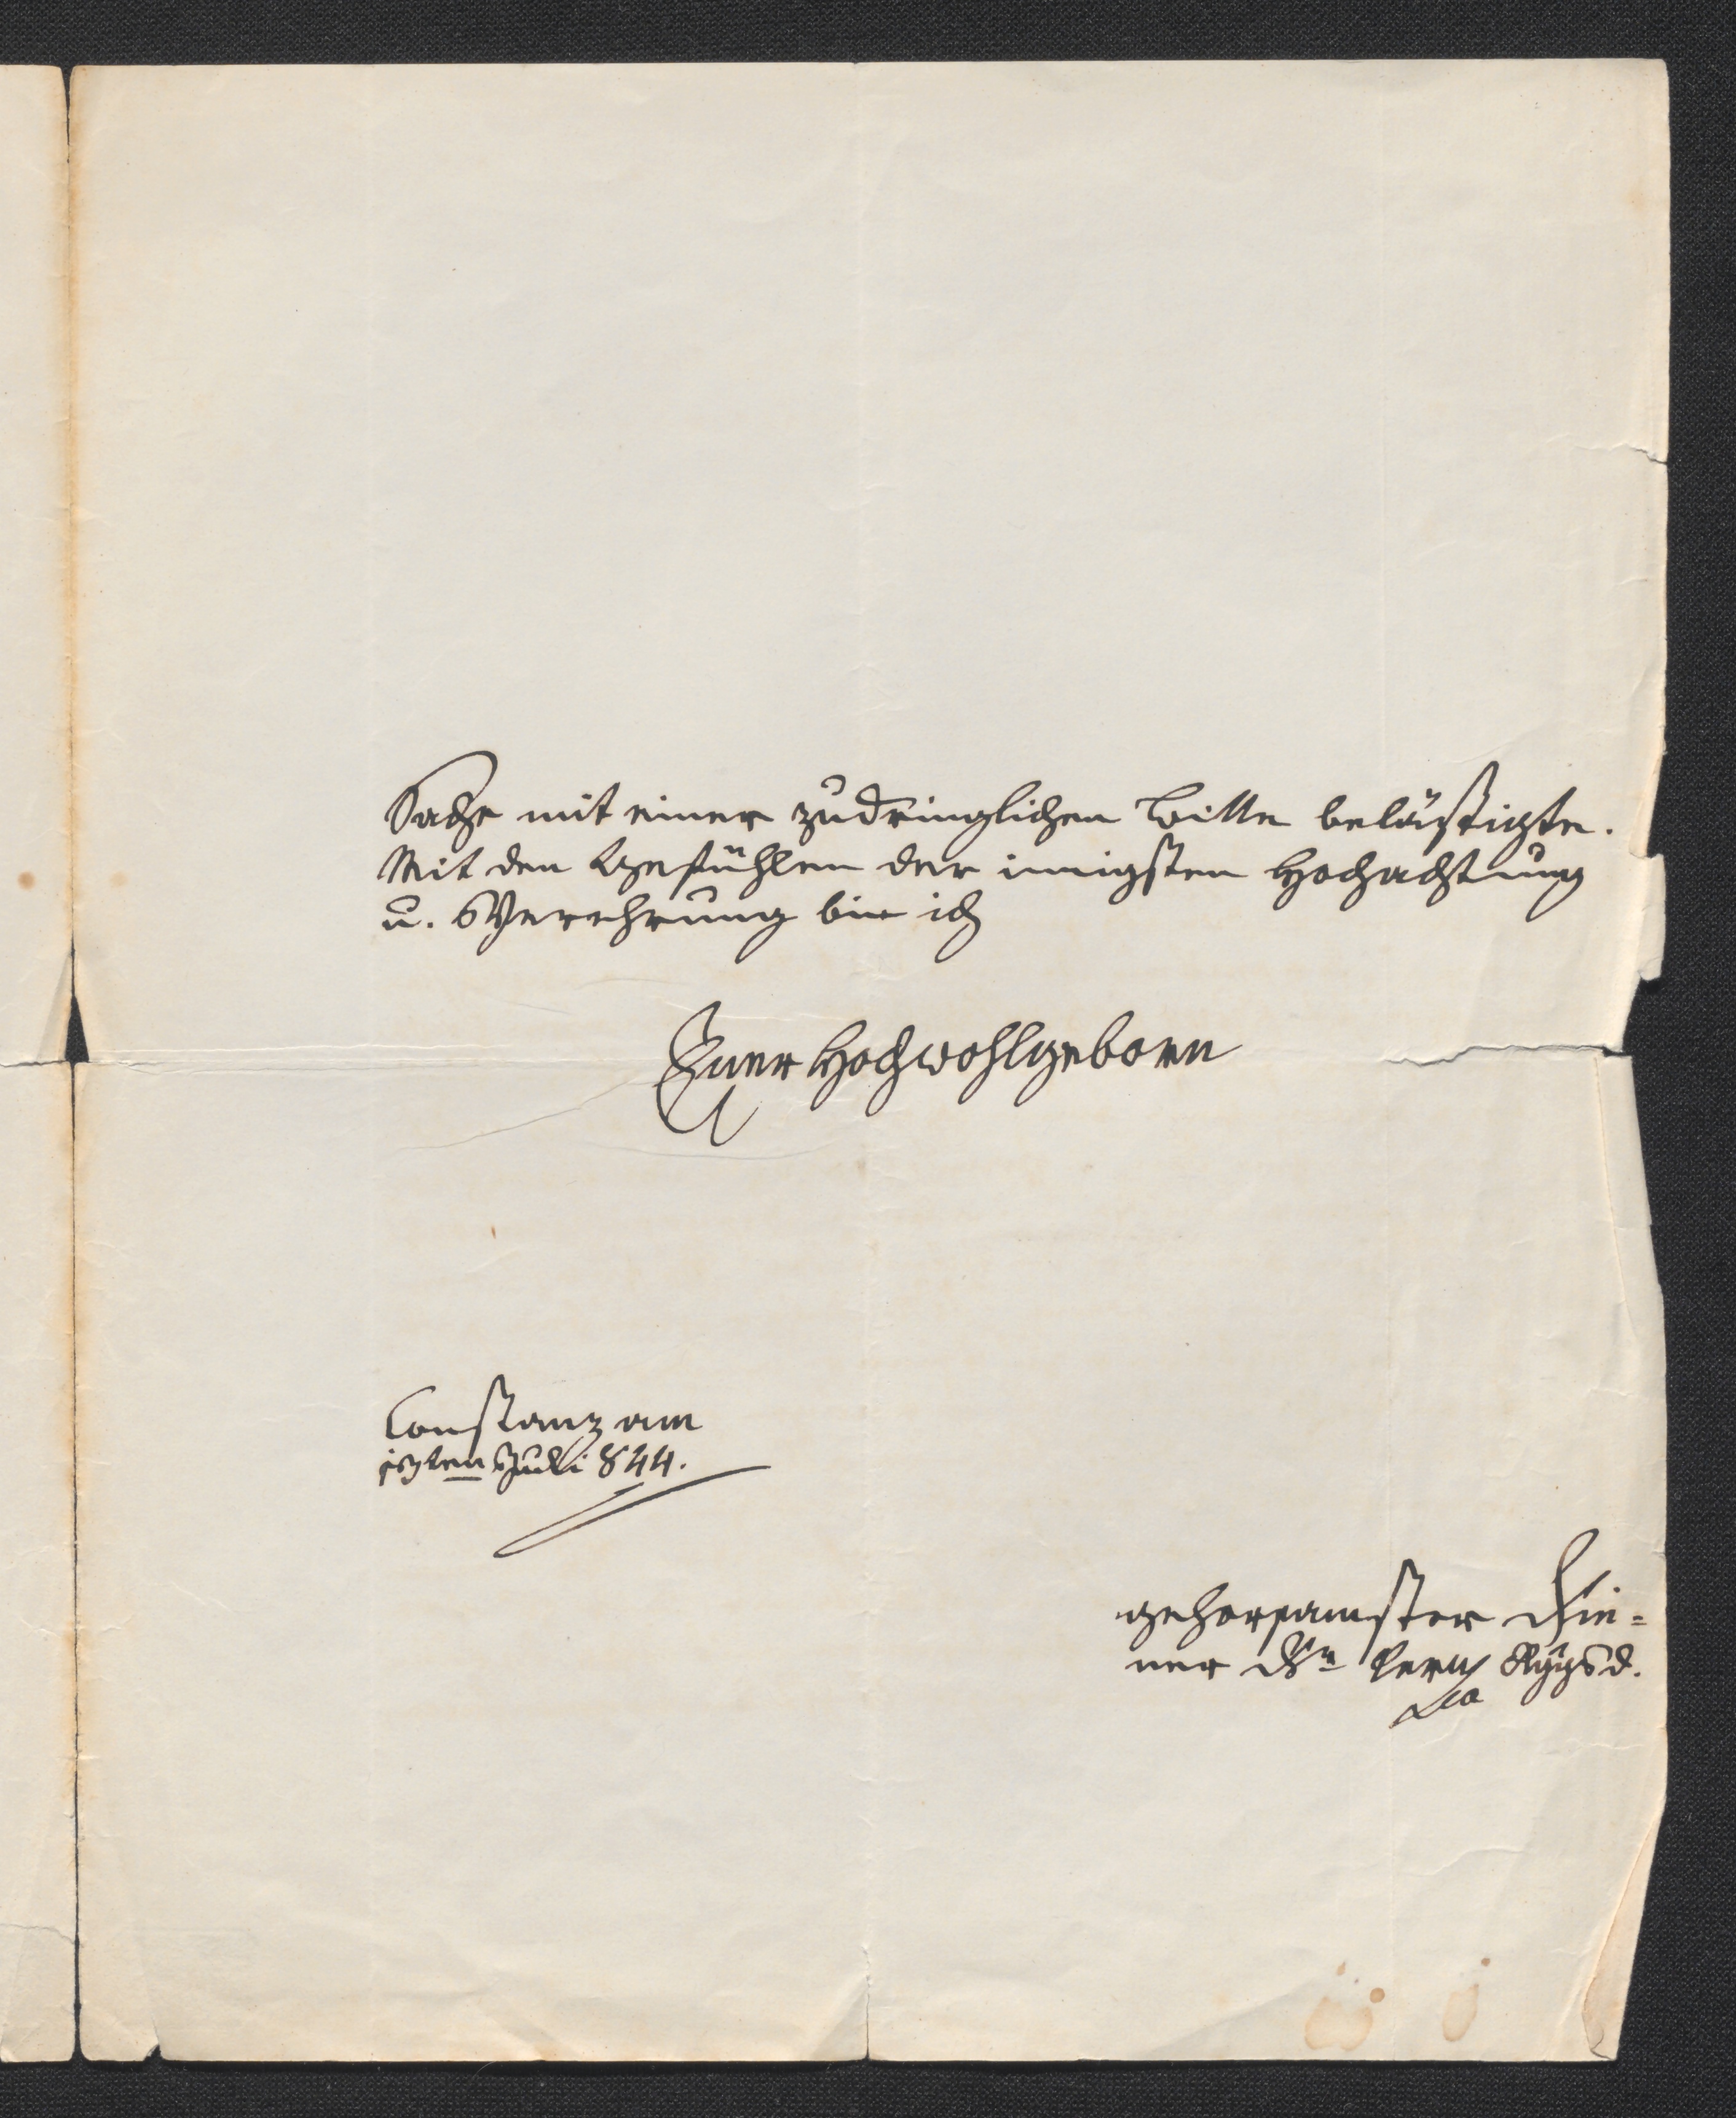 Sache mit einer zudringlichen Bitte belästigte.
Mit den Gefühlen der innigsten Hochachtung
u. Verehrung bin ich
Euer Hochwohlgeborn
Constanz am
Juli 844.
gehorsamster Die-
ner